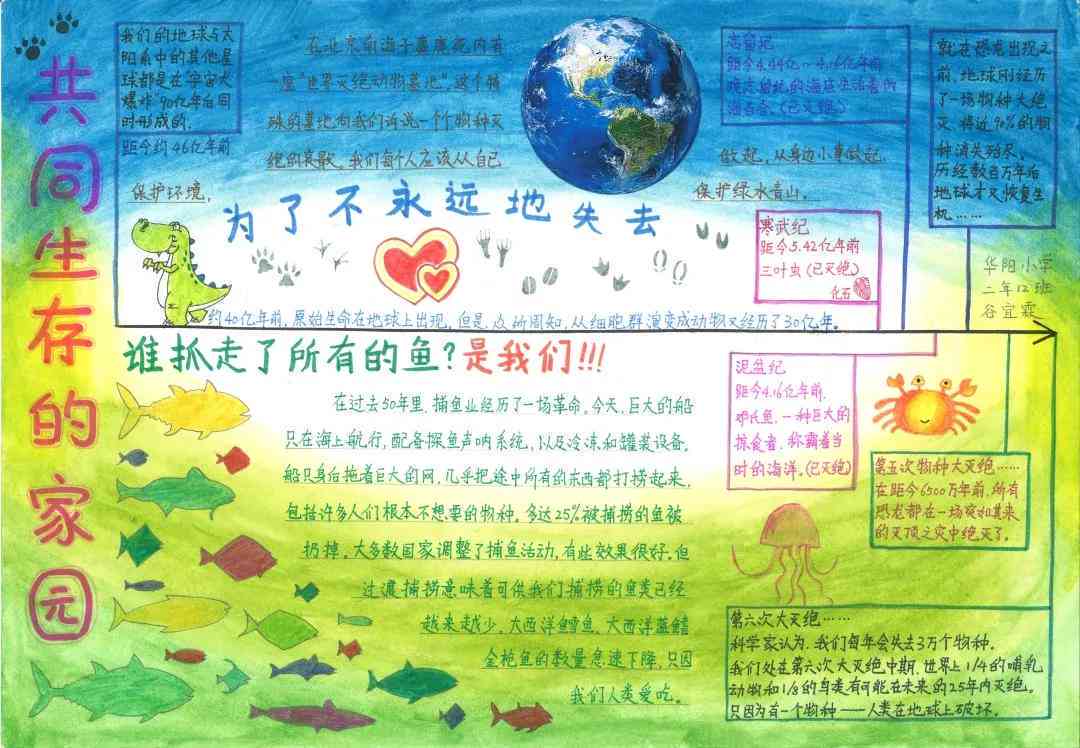 共同生存的家园
我们的地球与太
阳系中的其他星
球都是在宇宙大
爆炸90亿年后同
时形成的.
距今约46亿年前
在北京南海子麋鹿苑内有
一座"世界灭绝动物墓地",这个特
殊的墓地向我们诉说一个个物种灭
绝的哀歌。我们每个人应该从自己
做起,从身边小事做起.
保护环境,
保护绿水青山。
为了不永远地失去
志留纪
距今4.44亿~4.16亿年前
晚志留纪的海底生活着的
海百合.(已灭绝)
就在恐龙出现之
前,地球刚经历
了一场物种大绝
灭,将近90%的物
种消失殆尽。
历经数百万年后
地球才又恢复生
机……
寒武纪
距今5.42亿年前
三叶虫(已灭绝)
化石
华阳小学
二年12班
谷宜霖
约40亿年前,原始生命在地球上出现,但是,众所周知,从细胞群演变成动物又经历了30亿年。
谁抓走了所有的鱼?是我们!!!
在过去50年里,捕鱼业经历了一场革命。今天,巨大的船
只在海上航行,配备探鱼声呐系统,以及冷冻和罐装设备。
船只身后拖着巨大的网,几乎把途中所有的东西都打捞起来,
包括许多人们根本不想要的物种。多达25%被捕捞的鱼被
扔掉。大多数国家调整了捕鱼活动,有些效果很好。但
过渡捕捞意味着可供我们捕捞的鱼类已经
越来越少。大西洋鳕鱼。大西洋蓝鳍
金枪鱼的数量急速下降,只因
我们人类爱吃。
泥盆纪
距今4.16亿年前.
邓氏鱼,一种巨大的
掠食者,称霸着当
时的海洋。(已灭绝)
第五次物种大灭绝……
在距今6500万年前,所有
恐龙都在一场突如其来
的灭顶之灾中绝灭了。
第六次大灭绝……
科学家认为,我们每年会失去3万个物种。
我们处在第六次大灭绝中期,世界上1/4的哺乳
动物和1/8的鸟类有可能在未来的25年内灭绝。
只因为有一个物种——人类在地球上破坏。